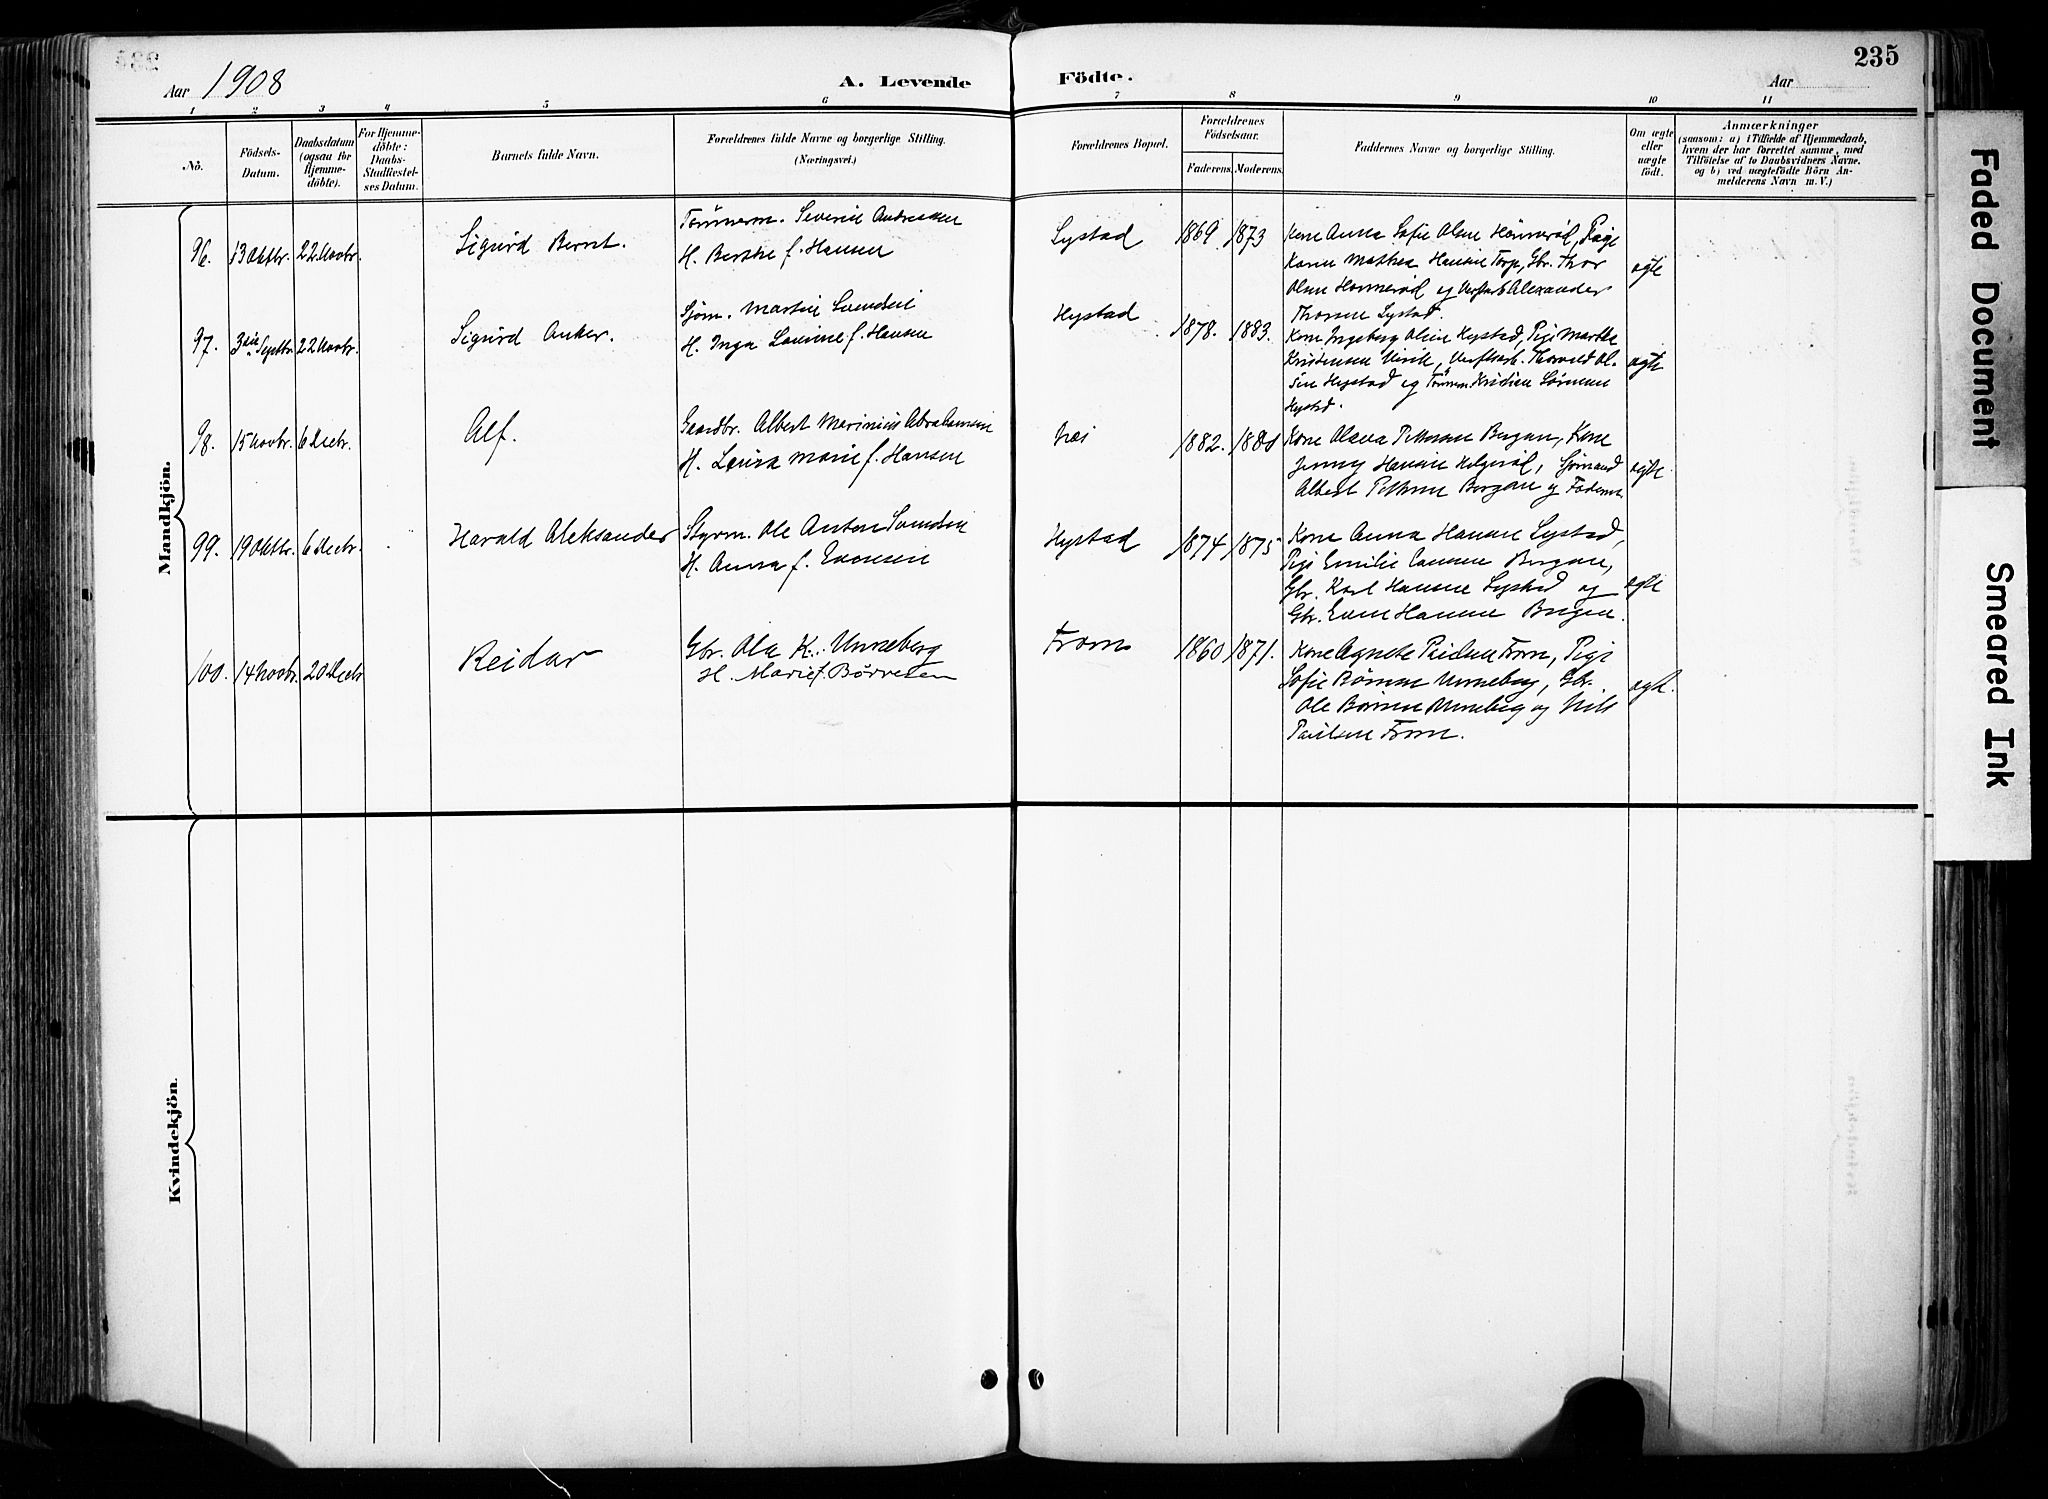 Aar 1908
A. Levende Födte.
Aar
235
1 2 3 4 5 6 7 8 9 10 11
Nô.
Födsels-Datum.
Daabsdatum (ogsaa för Hjemmedöbte).
For Hjemmedöbte: Daabs-Stadfæstelses Datum.
Barnets fulde Navn.
Forældrenes fulde Navne og borgerlige Stilling. (Næringsvei.)
Forældrenes Bopæl.
Forældrenes Födselsaar.
Faderens. Moderens.
Faddernes Navne og borgerlige Stilling.
Om ægte eller uægte födt.
Anmærkninger
(saasom: a) i Tilfælde af Hjemmedaab,
hvem der har forrettet samme, med
Tilföielse af to Daabsvidners Navne,
og b) ved uægtefödte Börn An-
melderens Navn m. V.)
Mandkjön.
96. 13 Oktbr. 22 Novbr. Sigurd Bernt.
Tömmerm. Severin Andreasen
H. Berthe f. Hansen
Lystad 1869 1873
Kone Anna Sofie Olsen Hönnerød, Pige
Karen Mathea Hansen Torp, Gbr. Thor
Olsen Honnerød og Verftarb Alexander
Thorsen Lystad.
ægte
97. 3die Septbr. 22 Novbr. Sigurd Anker.
Sjöm. Martin Svendsen
H. Inga Lovinne f. Hansen
Hystad 1878. 1883.
Kone Ingeborg Oline Hystad, Pige Marthe
Kristensen Virik, Verftsarb. Thorvald Ol-
sen Hystad og Tömrm. Kristian Sörensen
Hystad.
ægte
98. 15 Novbr. 6 Decbr. Alf.
Gaardbr. Albert Marinius Abrahamsen
H. Lovisa Marie f. Hansen
1882.
Kone Olava Pettersen Bergan, Kone
Jenny Hansen Helgerød, Sjömand
Albert Pettersen Bergan og Faderen
ægte
99. 19 Oktbr. 6 Decbr. Harald Aleksander
Styrm. Ole Anton Svendsen
H. Anna f. Evensen
Hystad 1874 1875
Kone Anna Hansen Lystad,
Pige Emilie Hansen Bergan,
Gbr. Karl Hansen Lystad og
Gbr. Even Hansen Bergan.
ægte
100. 14 Novbr. 20 Decbr Reidar
Gbr. Ole K. Unneberg
H. Marie f. Børresen
From 1860 1871.
Kone Agnete Paulsen From, Pige
Sofie Børresen Unneberg, Gbr.
Ole Børresen Unneberg og Nils
Paulsen From.
ægte.
Kvindekjön.
Faded Document
Smeared Ink